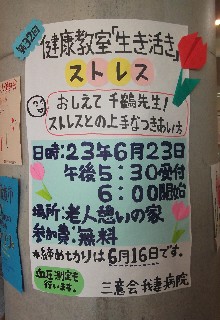 第32回
健康教室「生き活き」
ストレス
おしえて 千鶴先生!
ストレスとの上手なつきあい方
日時:23年6月23日
午後5:30受付
6:00開始
場所:老人憩いの家
参加費:無料
*締めきりは6月16日です。
血圧測定も
行います。
三意会我妻病院